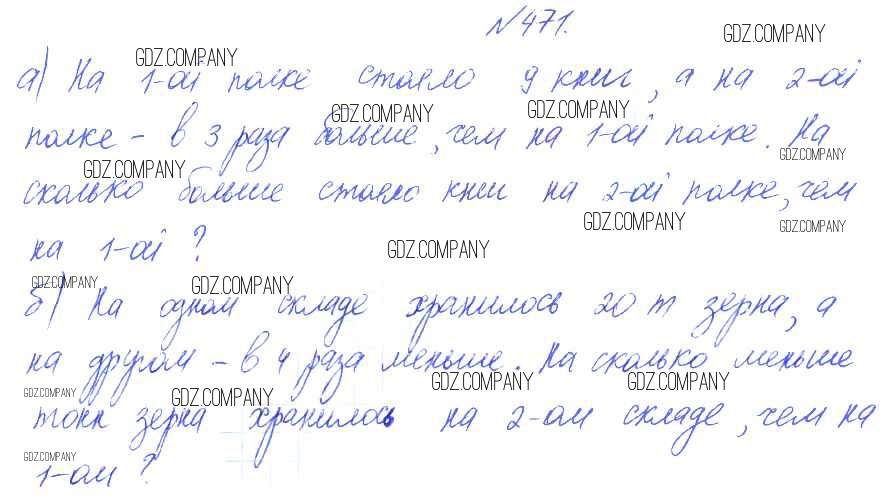 №471.
GDZ.COMPANY
GDZ.COMPANY
а) На 1-ой полке стояло 9 книг, а на 2-ой
GDZ.COMPANY GDZ.COMPANY
полке - в 3 раза больше, чем на 1-ой полке. На
GDZ.COMPANY
GDZ.COMPANY
сколько больше стояло книг на 2-ой полке, чем
GDZ.COMPANY GDZ.COMPANY
на 1-ой?
GDZ.COMPANY
GDZ.COMPANY GDZ.COMPANY
б) На одном складе хранилось 20 т зерна, а
на другом - в 4 раза меньше. На сколько меньше
GDZ.COMPANY GDZ.COMPANY GDZ.COMPANY GDZ.COMPANY
тонн зерна хранилось на 2-ом складе, чем на
GDZ.COMPANY
1-ом?